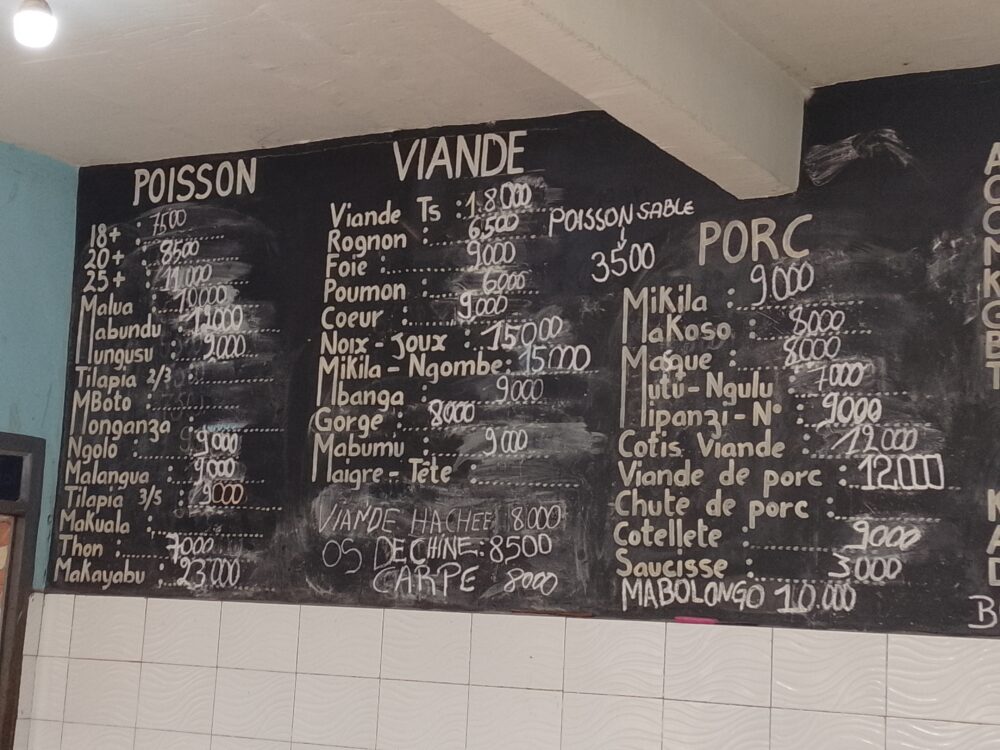 POISSON
18+ : 7500
20+ : 8500
25+ : 11000
Malua : 10000
Mabundu : 12000
Mungusu : 9000
Tilapia 2/3 :
MBoto :
Monganza :
Ngolo : 9000
Malangua : 9000
Tilapia 3/5 : 9000
Makuala :
Thon : 7000
Makayabu : 23000
VIANDE
Viande Ts : 18000
Rognon : 6500
Foie : 9000
Poumon : 6000
Coeur : 9000
Noix - Joux : 15000
Mikila - Ngombe : 15000
Mbanga : 9000
Gorge : 8000
Mabumu : 9000
Maigre - Tête :
VIANDE HACHEE 8000
OS DECHINE : 8500
CARPE 8000
POISSON SABLE
3500
PORC
Mikila : 9000
Makoso : 8000
Masque : 8000
Mutu - Ngulu : 7000
Mipanzi - N° : 9000
Cotis Viande : 12000
Viande de porc : 12000
Chute de porc :
Cotellete : 9000
Saucisse : 3000
MABOLONGO 10.000